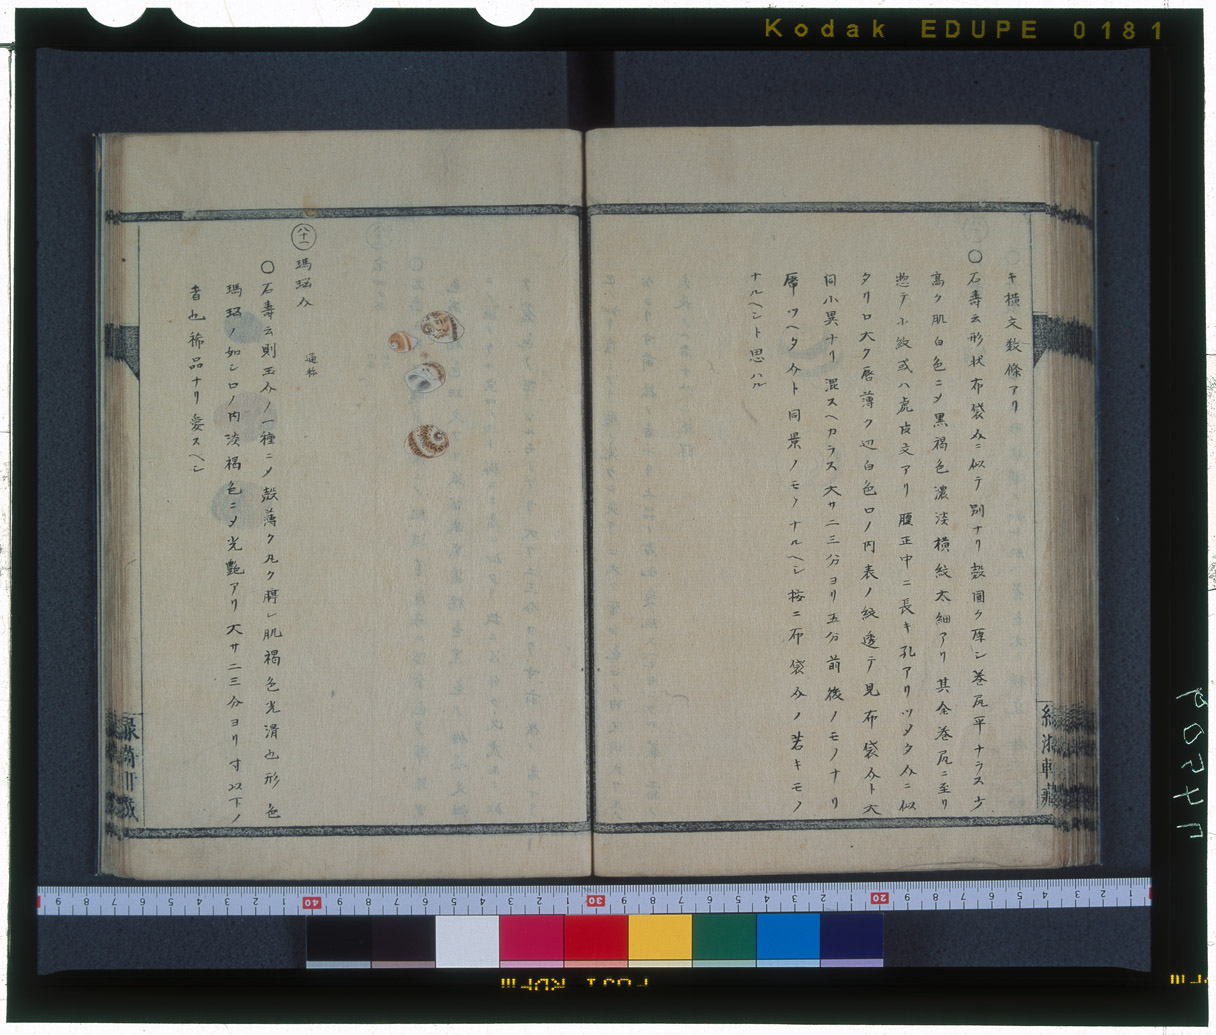 Kodak EDUPE 0181
キ横文数條アリ
〇石壽云形状布袋介ニ似テ別ナリ殻固ク厚シ巻尻平ナラスヅ
高ク肌白色ニ〆黒褐色濃淡横紋太細アリ其余巻尻ニ至リ
惣テ小紋或ハ虎皮文アリ腹正中ニ長キ孔アリツメタ介ニ似
タリ口大ク唇薄ク辺白色口ノ内表ノ紋透テ見布袋介ト大
同小異ナリ混スヘカラス大サ二三分ヨリ五分前後ノモノナリ
ツヘタ介ト同景ノモノナルヘシ按ニ布袋介ノ若キモノ
ナルヘシト思ハル
八十一 瑪瑙介 通称
〇石壽云則玉介ノ一種ニ〆殻薄ク丸ク脖レ肌褐色光滑也形色
瑪瑙ノ如シ口ノ内淡褐色ニ〆光艶アリ大サ二三分ヨリ寸以下ノ
者也稀品ナリ愛スヘシ
軒藏
20
30
40
FUJI RDP III